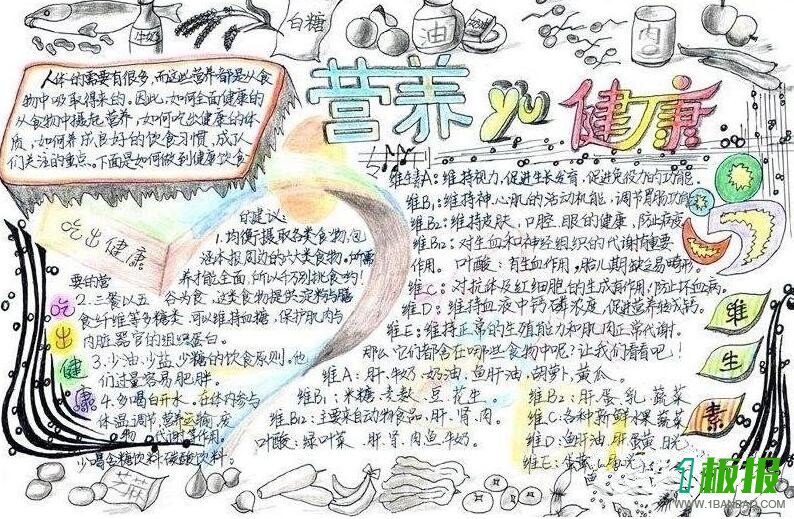 牛奶
白糖
油
肉
营养yu健康
人体的需要有很多,而这些营养都是从食
物中吸取得来的。因此,如何全面健康的
从食物中摄起营养,如何吃出健康的体
质,如何养成良好的饮食习惯,成了人
们关注的重点。下面是如何做到健康饮食
的建议:
吃出健康
1.均衡摄取各类食物,包
活本报周边的六大类食物。所需
要的营
养才能全面,所以千万别挑食哟!
2.三餐以五谷为食,这类食物提供淀粉与膳
食纤维等多糖类,可以维持血糖,保护肌肉与
内脏器官的组织蛋白。
3.少油、少盐、少糖的饮食原则。他
们过量容易肥胖。
4.多喝白开水。在体内参与
体温调节,营养运输,废
物代谢等作用。
少喝含糖饮料,碳酸饮料。
吃
出
健
康
维生素A:维持视力,促进生长发育,促进免疫力的功能。
维B₁:维持神心肌的活动机能,调节胃肠功能
维B₂:维持皮肤,口腔,眼的健康,防止
维B₁₂:对生血和神经组织的代谢有重要
作用。叶酸:有生血作用,胎儿期缺乏易畸形。
维C:对抗体及红细胞的生成有作用,防止坏血病。
维D:维持血液中钙磷浓度,促进营养
维E:维持正常的生殖能力和肌肉正常代谢。
那么它们都含在哪些食物中呢?让我们看看吧!
维A:肝、牛奶、奶油、鱼肝油、胡萝卜、黄瓜。
维B₁:米糠、麦麸、豆、花生。 维B₂:肝、蛋、乳、蔬菜
维B₁₂:主要来自动物食品,肝、肾、肉。 维C:各种新鲜水果蔬菜
叶酸:绿叶菜、肝、肾、肉、鱼、牛奶。 维D:鱼肝油、肝、蛋黄、日光
维E:
维
生
素
芝麻
1板报
WWW.1BANBAO.COM